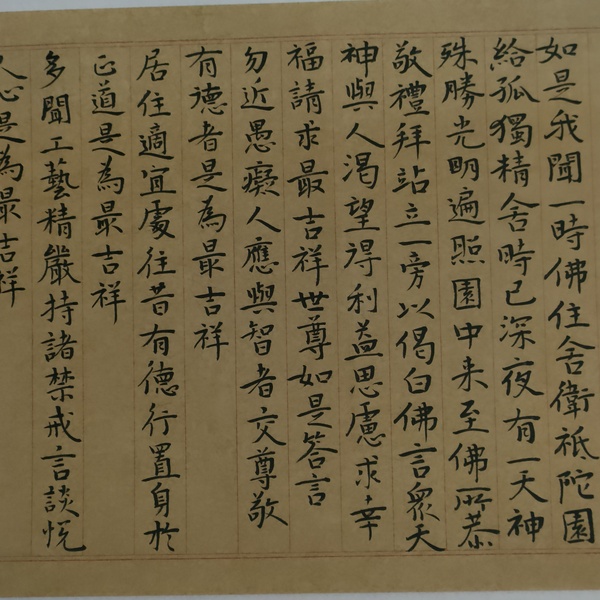 如是我聞一時佛住舍衛祇陀園
給孤獨精舍時已深夜有一天神
殊勝光明遍照園中来至佛所恭
敬禮拜站立一旁以偈白佛言衆天
神與人渴望得利益思慮求幸
福請求最吉祥世尊如是答言
勿近愚癡人應與智者交尊敬
有德者是為最吉祥
居住適宜處往昔有德行置身於
正道是為最吉祥
多聞工藝精嚴持諸禁戒言談悅
人心是為最吉祥